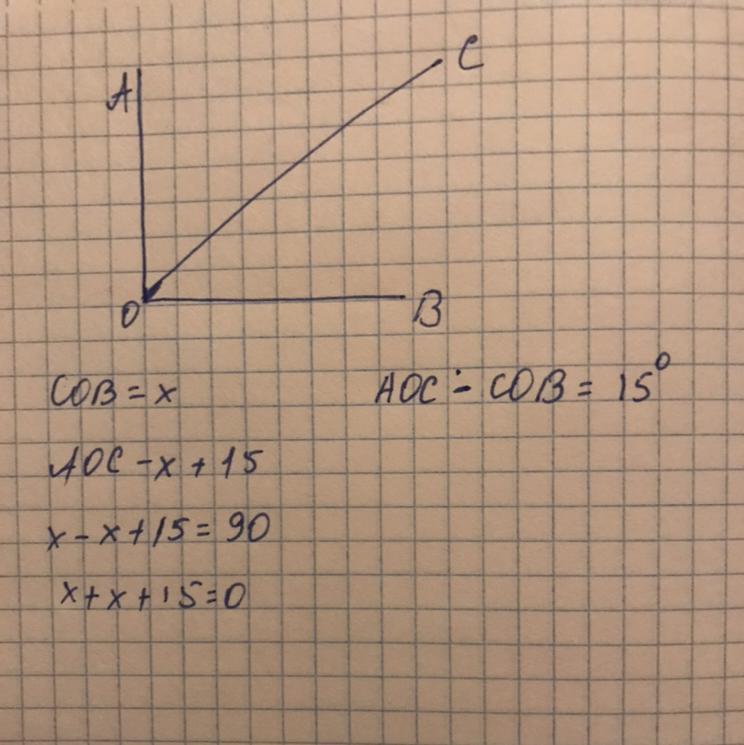 A
C
O
B
COB = x
AOC - COB = 15°
AOC - x + 15
x - x + 15 = 90
x + x + 15 = 0